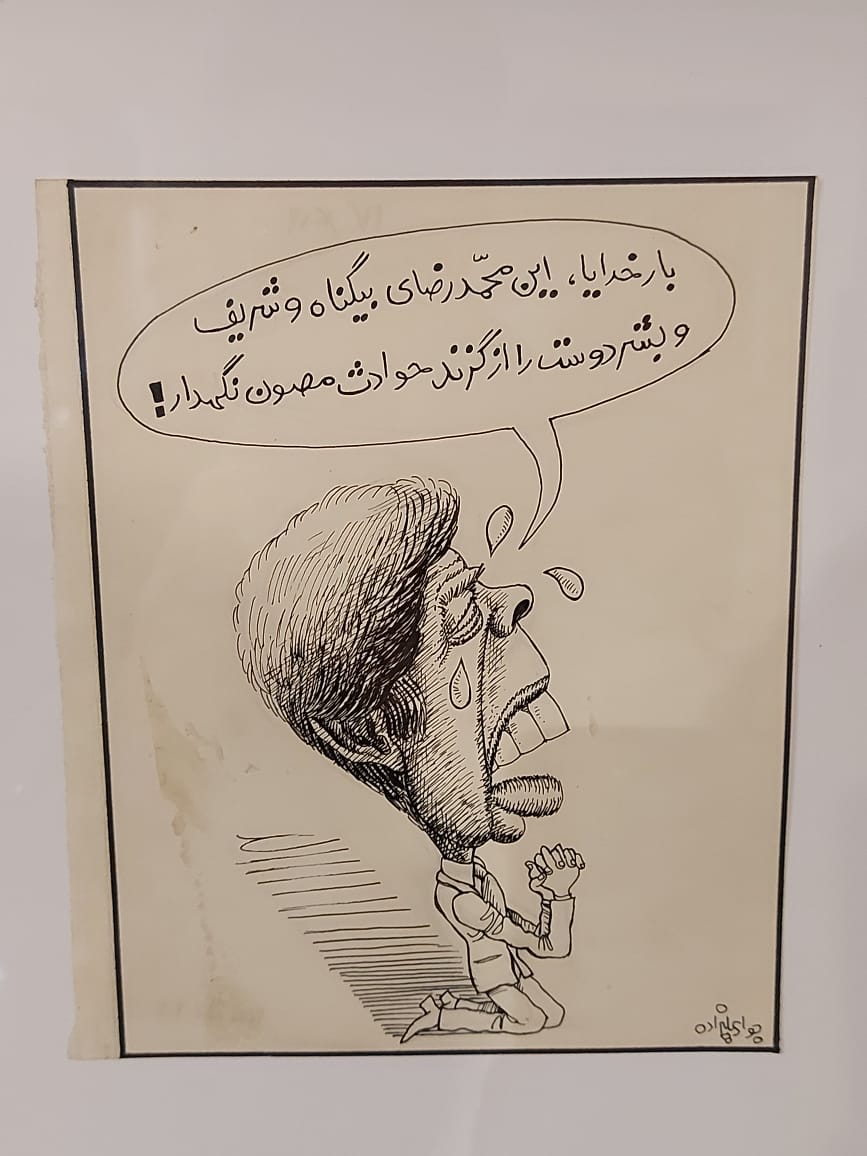 بارخدایا، این محمّدرضای بیگناه و شریف
و بشردوست را از گزند حوادث مصون نگهدار!